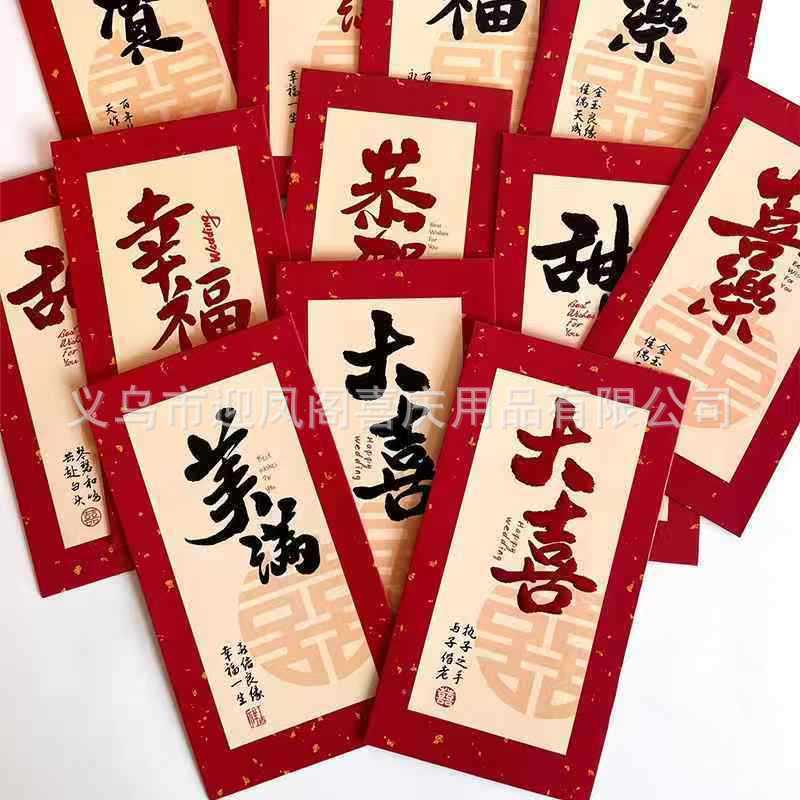 賀
百年
天作
幸福一生
福
百
永
樂
You
金玉良缘
佳偶天成
甜
Best
Wishes
For
You
琴瑟和鸣
共赴白头
幸福
Wedding
恭賀
Best
Wishes
For
You
甜
Best
Wishes
For
You
喜樂
Best
Wishes
For
You
金玉
佳偶
大喜
Happy
wedding
美满
Best
wishes
for
You
永结良缘
幸福一生
大喜
Happy
wedding
执子之手
与子偕老
囍
义乌市迎凤阁喜庆用品有限公司